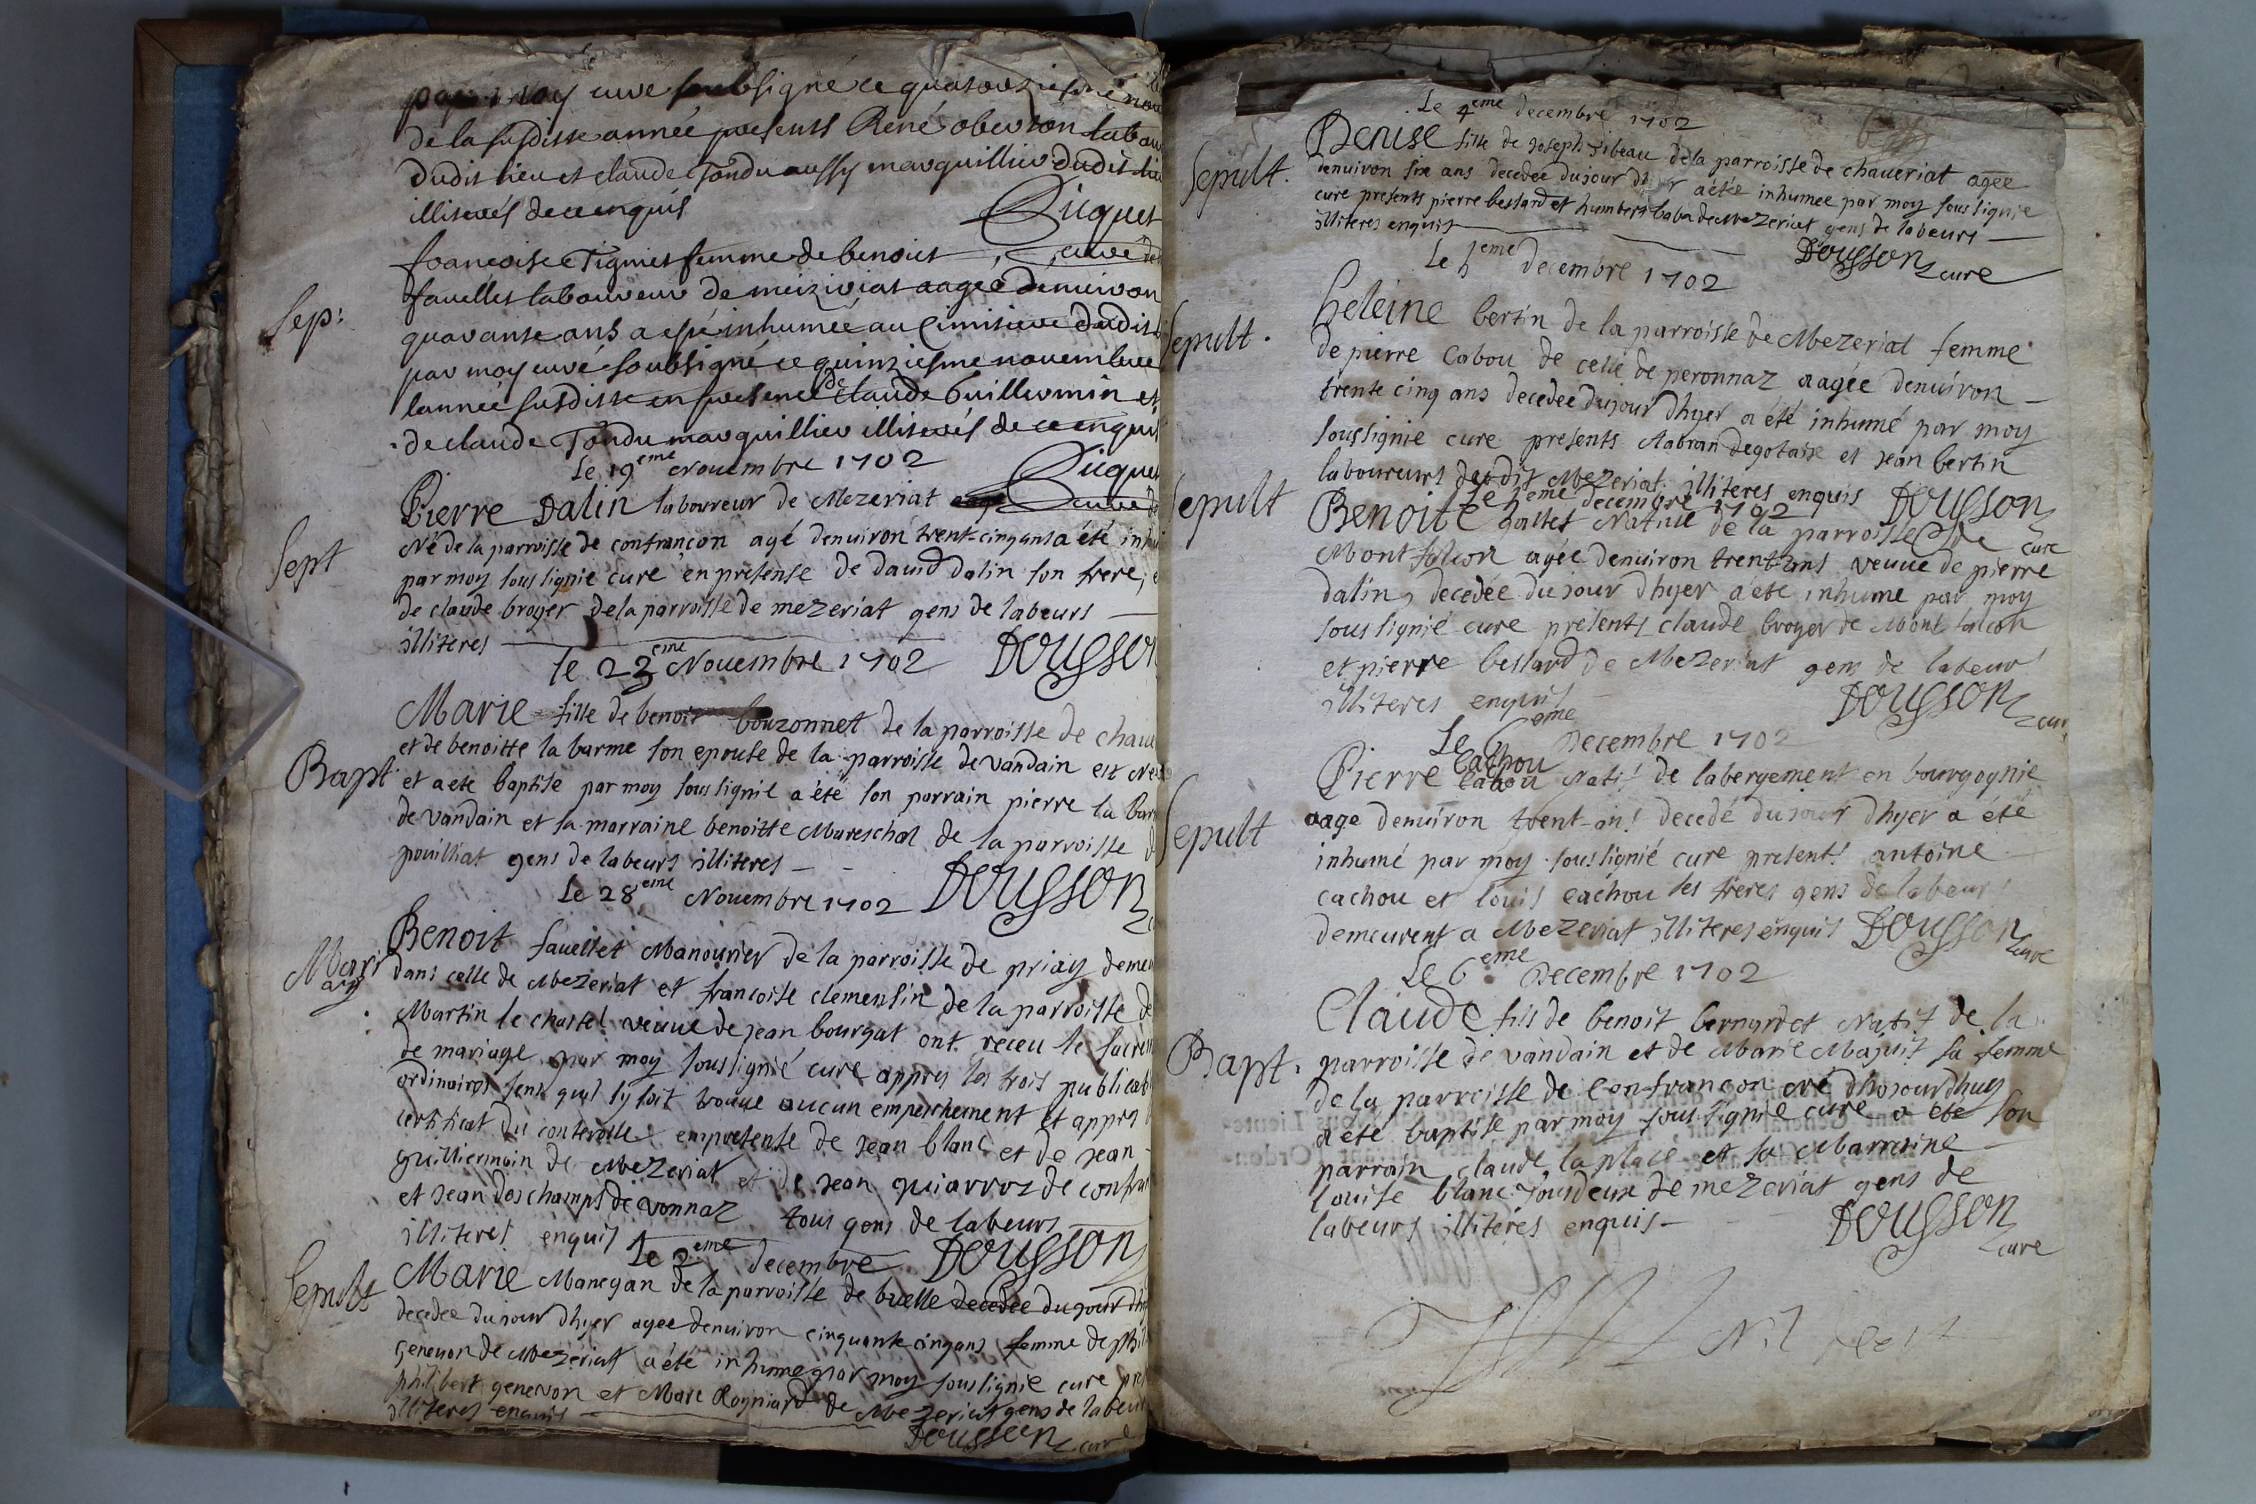 par moy curé soubsigné ce quatorziesme
de la susditte année presents René obeuron
dudit lieu et claude Tondu aussy marguillier dudit lieu
illiterés de ce enquis
Sicquet
curé
Sep:
francoise Tignier femme de benoict
favellet laboureur de meiziriat aagée d'enuiron
quarante ans a esté inhumée au Cimitiere dudit
par moy curé soubsigné ce quinziesme nouembre
lannée susditte en presence de claude Guillermin et
de claude Tondu marguillier illiterés de ce enquis
Sicquet
curé
Le 19eme Nouembre 1702
Sept
Pierre Dalin laboureur de Mezeriat
Né de la parroisse de confrancon agé denuiron trent-cinq ans a été
par moy soussignie cure en presense de dauid dalin son frere,
de claude broyer de la parroisse de mezeriat gens de labeurs
illiteres
Dousson
le 23eme Nouembre 1702
Bapt
Marie fille de benoit bouzonnet de la parroisse de
et de benoitte la barme son epouse de la parroisse de vandain est
et a ete baptise par moy soussignie a été son parrain pierre la
de vandain et sa marraine benoitte Mareschal de la parroisse
pouilliat gens de labeurs illiteres
Dousson
Le 28eme Nouembre 1702
Marr
Benoit fauellet Manourier de la parroisse de priay
dans celle de Mezeriat et francoise clementin de la parroisse de
Martin le chastel veuue de jean bourgat ont receu le
de mariage par moy soussignié cure appres les trois
ordinaires sens quil sy soit trouue aucun empeschement et appres
certificat du conterolle empresense de Jean blanc et de Jean
guilliermin de Mezeriat et de Jean guiarroz de
et Jean deschamps de vonnaz tous gens de labeurs
illiteres enquis
Dousson
Le 2eme decembre
Sepult
Marie Manegan de la parroisse de buelle decedée du jour
decedee du jour dhyer agee denuiron cinquante cinq ans femme de
Geneuon de Mezeriat a été inhume par moy soussignie cure
philibert geneuon et Marc Rogniard de Mezeriat gens de labeur
illiteres enquis
Dousson cure
Le 4eme decembre 1702
Sepult.
Denise fille de Joseph Tibeau de la parroisse de chaueriat agée
denuiron six ans decedee du jour a étée inhumee par moy soussignie
cure presents pierre bestard et humbert de Mezeriat gens de labeurs
illiteres enquis
Dousson cure
Le 5eme decembre 1702
Sepult.
heleine bertin de la parroisse de Mezeriat femme
de pierre Cabou de cellé de peronnaz aagée denuiron
trente cinq ans decedée du jour dhyer a été inhumé par moy
soussignie cure presents degotaise et Jean bertin
laboureurs dudit Mezeriat illiteres enquis
Dousson
cure
Le 5eme decembre 1702
Sepult
Benoite Natiue de la parroisse de
Montfalcon agée denuiron trent-ans veuue de pierre
dalin, decedée du jour dhyer a été inhume par moy
soussignié cure présents claude broyer de Montfalcon
et pierre bestard de Mezeriat gens de labeur
illiteres enquis
Dousson
cure
Le 6eme Decembre 1702
Sepult
cachou
Pierre Natif de labergement en bourgognie
aage denuiron trent-ans decedé du jour dhyer a été
inhumé par moy soussignié cure presents antoine
cachou et louis cachou ses freres gens de labeurs
demeurent a Mezeriat illiteres enquis
Dousson
cure
Le 6eme Decembre 1702
Bapt.
Claude fils de benoit bernardet Natif de la
parroisse de vandain et de Marie Majuit sa femme
de la parroisse de confrancon né dhojourdhuy
a été baptise par moy soussignie cure a été son
parrain claude la place et sa Marreine
louise blanc tous deux de mezeriat gens de
labeurs illitéres enquis
Dousson
cure